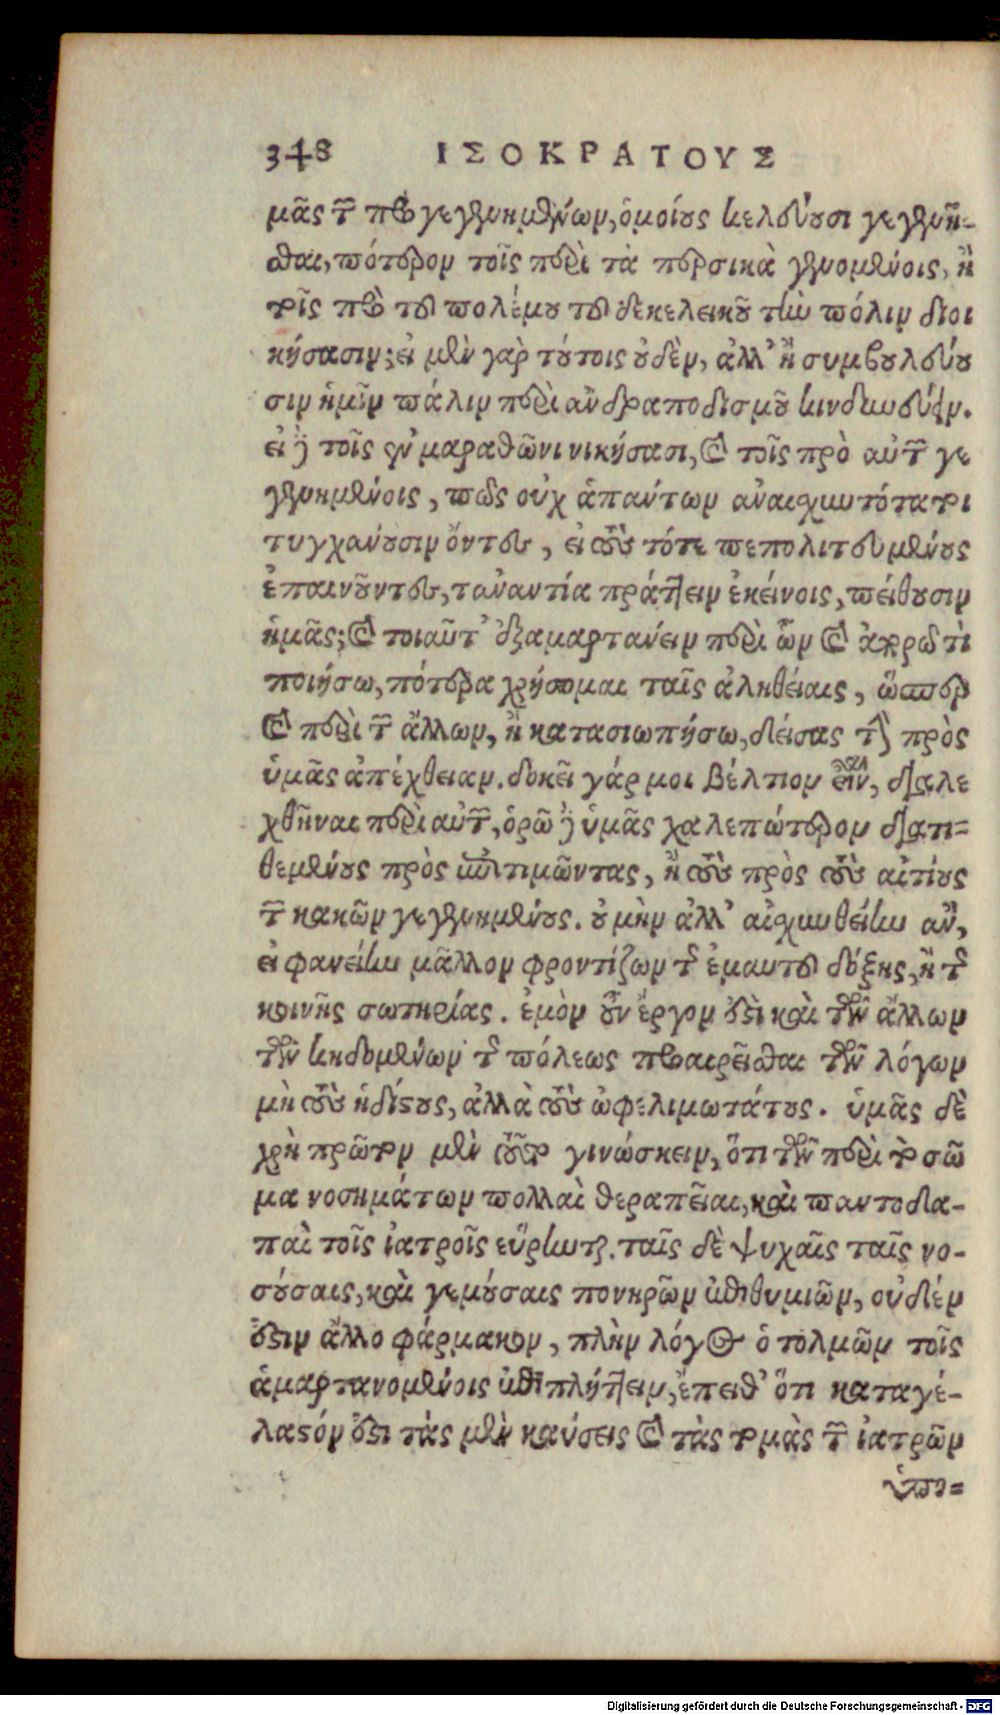 348 ΙΣΟΚΡΑΤΟΥΣ
μᾶς τῶν προγεγενημένων, ὁμοίους κελεύουσι γεγενῆ-
σθαι, πότερον τοῖς περὶ τὰ περσικὰ γενομένοις, ἢ
τοῖς πρὸ τοῦ πολέμου τοῦ δεκελεικοῦ τὴν πόλιν διοι
κήσασιν; εἰ μὲν γὰρ τούτοις οὐδὲν, ἀλλ' ἢ συμβουλεύου
σιν ἡμῖν πάλιν περὶ ἀνδραποδισμοῦ κινδυνεύειν.
εἰ δὲ τοῖς ἐν μαραθῶνι νικήσασι, καὶ τοῖς πρὸ αὐτῶν γε
γενημένοις, πῶς οὐχ ἁπάντων ἀναισχυντότατοι
τυγχάνουσιν ὄντες, εἰ τοὺς τότε πεπολιτευμένους
ἐπαινοῦντες, τἀναντία πράττειν ἐκείνοις, πείθουσιν
ἡμᾶς; καὶ τοιαῦτ' ἐξαμαρτάνειν περὶ ὧν καὶ ἀπορῶ τὶ
ποιήσω, πότερα χρήσομαι ταῖς ἀληθείαις, ὥσπερ
καὶ περὶ τῶν ἄλλων, ἢ κατασιωπήσω, δείσας τὴν πρὸς
ὑμᾶς ἀπέχθειαν. δοκεῖ γάρ μοι βέλτιον εἶναι, διαλε
χθῆναι περὶ αὐτῶν, ὁρῶ δὲ ὑμᾶς χαλεπώτερον διατι-
θεμένους πρὸς τοὺς ἐπιτιμῶντας, ἢ τοὺς πρὸς τοὺς αἰτίους
τῶν κακῶν γεγενημένους. οὐ μὴν ἀλλ' αἰσχυνθείην ἂν,
εἰ φανείην μᾶλλον φροντίζων τῆς ἐμαυτοῦ δόξης, ἢ τῆς
κοινῆς σωτηρίας. ἐμὸν οὖν ἔργον ἐστὶ καὶ τῶν ἄλλων
τῶν κηδομένων τῆς πόλεως προαιρεῖσθαι τῶν λόγων
μὴ τοὺς ἡδίστους, ἀλλὰ τοὺς ὠφελιμωτάτους. ὑμᾶς δὲ
χρὴ πρῶτον μὲν τοῦτο γινώσκειν, ὅτι τῶν περὶ τὸ σῶ
μα νοσημάτων πολλαὶ θεραπεῖαι, καὶ παντοδα-
παὶ τοῖς ἰατροῖς εὕρηνται. ταῖς δὲ ψυχαῖς ταῖς νο-
σούσαις, καὶ γεμούσαις πονηρῶν ἐπιθυμιῶν, οὐδέν
ἐστιν ἄλλο φάρμακον, πλὴν λόγος ὁ τολμῶν τοῖς
ἁμαρτανομένοις ἐπιπλήττειν, ἔπειθ' ὅτι καταγέ-
λαστόν ἐστι τὰς μὲν καύσεις καὶ τὰς τομὰς τῶν ἰατρῶν
ὑπο-
Digitalisierung gefördert durch die Deutsche Forschungsgemeinschaft - DFG